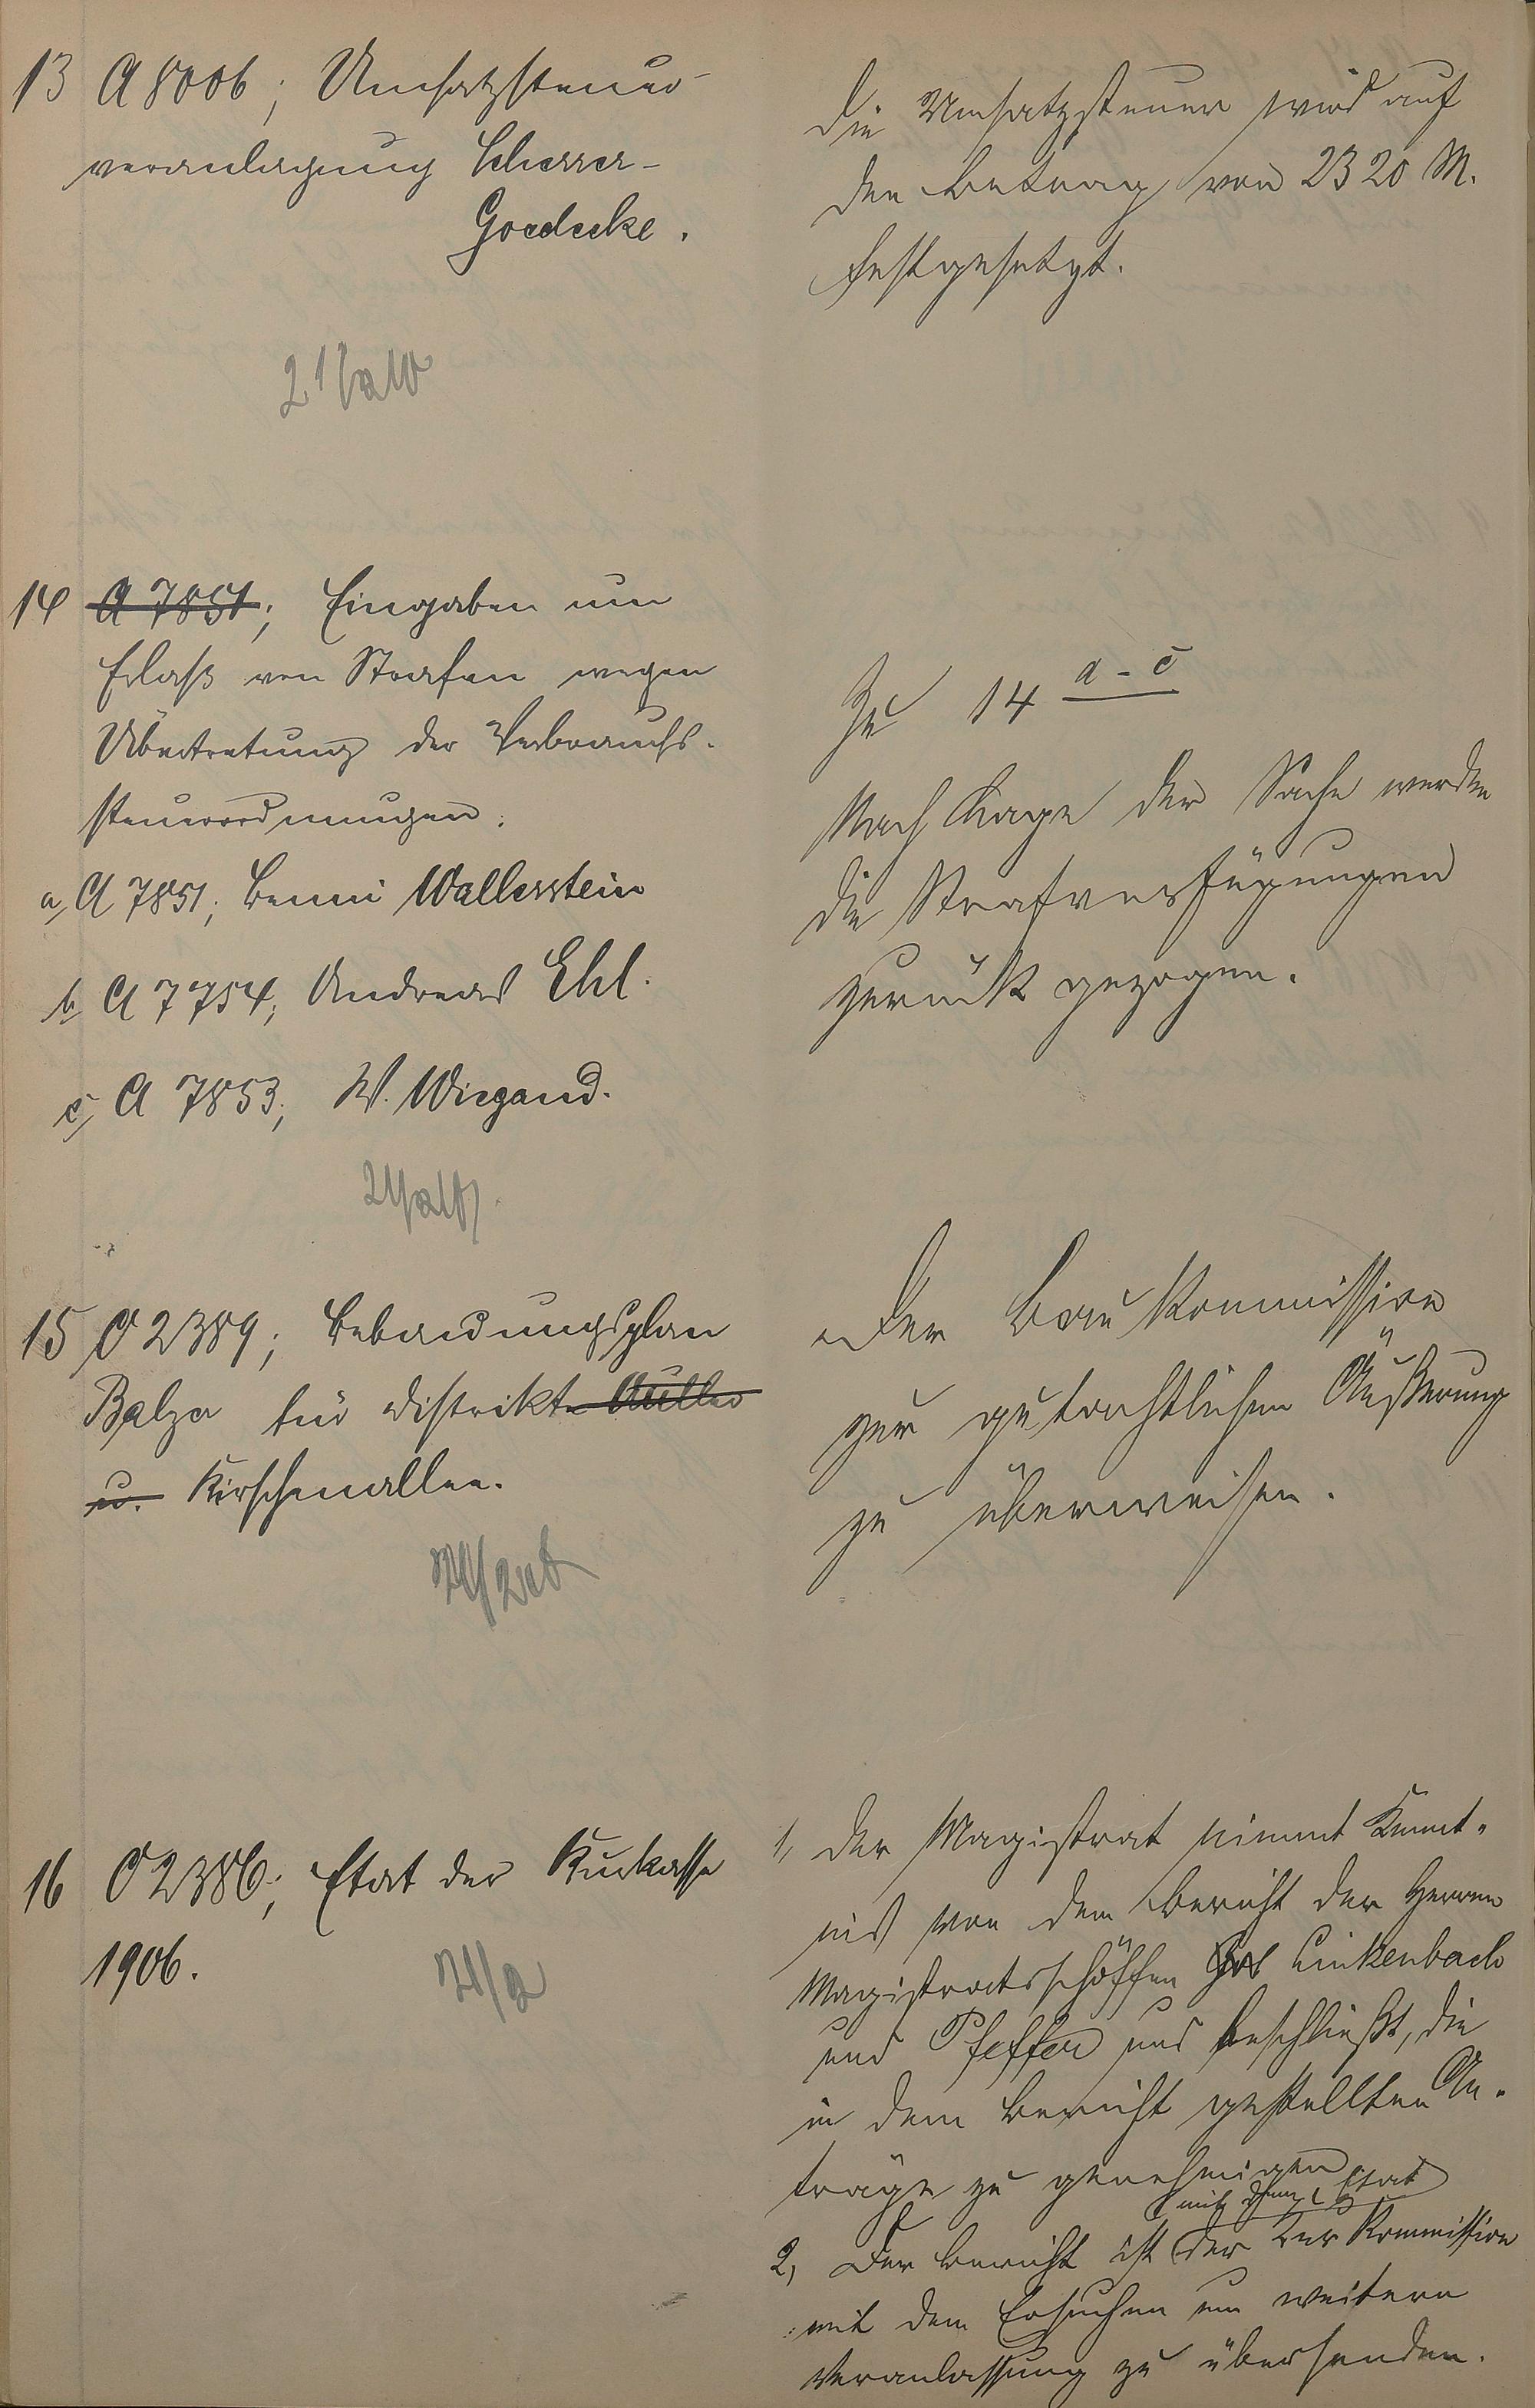 13 A 8006; Umsatzsteuer-
veranlagung Scherrer-
Goedecke.
Die Umsatzsteuer wird auf
den Betrag von 2320 M.
festgesetzt.
14 A 7851; Eingaben um
Erlaß von Strafen wegen
Übertretung der Verbrauchs-
steuerordnungen.
a, A 7851; Benni Wallerstein
b, A 7754; Andreas Ehl.
c, A 7853; W. Wiegand.
Zu 14 a-c
Nach Lage der Sache werden
die Strafverfügungen
zurück gezogen.
15 O 2389; Bebauungsplan
Balzer für Distrikt
u. Kirschenallee.
Der Bau Kommission
zur gutachtlichen Äußerung
zu überweisen.
16 O 2386; Etat der Kurkasse
1906.
1, Der Magistrat nimmt Kennt-
nis von dem Bericht der Herren
Magistratsschöffen Linkenbach
und Pfeffer und beschließt, die
in dem Bericht gestellten An-
träge zu genehmigen
mit dem Etat
2, Der Bericht ist der Kur Kommission
mit dem Ersuchen um weitere
Veranlassung zu übersenden.